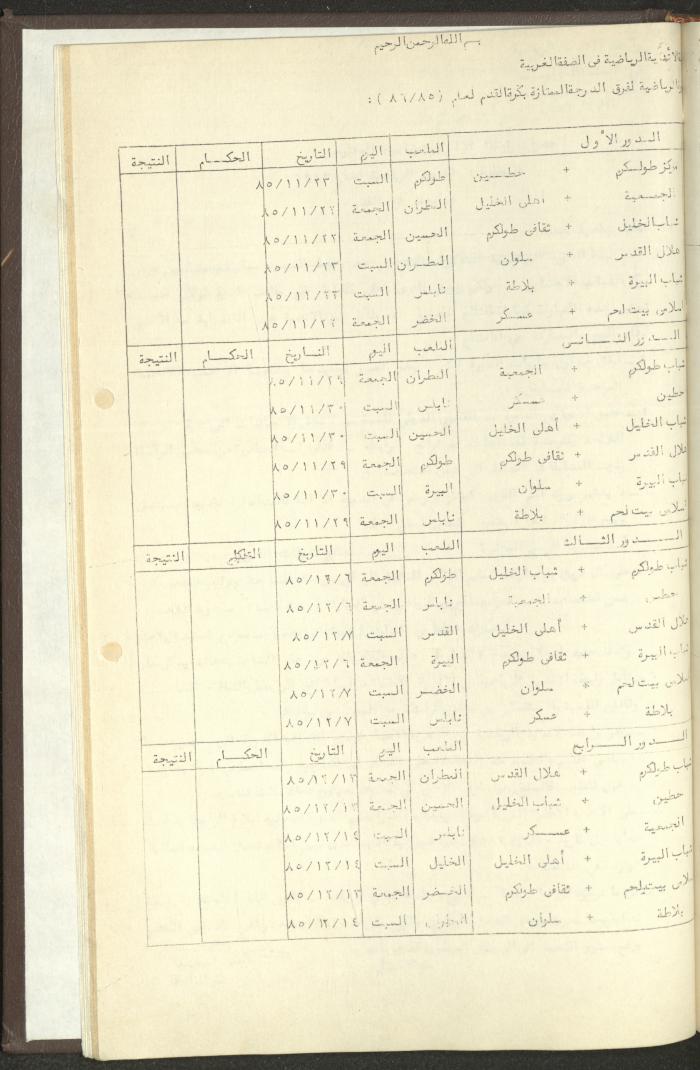 بسم الله الرحمن الرحيم
الرياضية فى الضفة الغربية
الرياضية لفرق الدرجة الممتازة بكرة القدم لعام (٨٦/٨٥) :
الــدور الأول الملعب اليوم التاريخ الحكــام النتيجة
مركز طولكرم + حطــين طولكرم السبت ٨٥/١١/٢٣
الجمعية + اهلى الخليل المطران الجمعة ٨٥/١١/٢٢
شباب الخليل + ثقافى طولكرم الحسين الجمعة ٨٥/١١/٢٢
هلال القدس + سلوان المطــران السبت ٨٥/١١/٢٣
شباب البيرة + بلاطة نابلس السبت ٨٥/١١/٢٣
اسلامى بيت لحم + عسـكر الخضر الجمعة ٨٥/١١/٢٢
الــدور الثــانـى الملعب اليوم التـاريخ الحكــام النتيجة
شباب طولكرم + الجمعية المطران الجمعة ٨٥/١١/٢٩
حطين + عسكر نابلس السبت ٨٥/١١/٣٠
شباب الخليل + أهلى الخليل الحسين السبت ٨٥/١١/٣٠
هلال القدس + ثقافى طولكرم طولكرم الجمعة ٨٥/١١/٢٩
شباب البيرة + سلوان البيرة السبت ٨٥/١١/٣٠
اسلامى بيت لحم + بلاطة نابلس الجمعة ٨٥/١١/٢٩
الـــدور الثــالـث الملعب اليوم التاريخ النتيجة
شباب طولكرم + شباب الخليل طولكرم الجمعة ٨٥/١٢/٦
حطين + الجمعية نابلس الجمعة ٨٥/١٢/٦
هلال القدس + أهلى الخليل القدس السبت ٨٥/١٢/٧
شباب البيرة + ثقافى طولكرم البيرة الجمعة ٨٥/١٢/٦
اسلامى بيت لحم + سلوان الخضـر السبت ٨٥/١٢/٧
بلاطة + عسكر نابلس السبت ٨٥/١٢/٧
الــدور الـــرابع الملعب اليوم التاريخ الحكــام النتيجة
شباب طولكرم + هلال القدس المطران الجمعة ٨٥/١٢/١٣
حطين + شباب الخليل الحسين الجمعة ٨٥/١٢/١٣
الجمعية + عســـكر نابلس السبت ٨٥/١٢/١٤
شباب البيرة + أهلى الخليل الخليل السبت ٨٥/١٢/١٤
اسلامى بيت لحم + ثقافى طولكرم الخضر الجمعة ٨٥/١٢/١٣
بلاطة + سلوان المطران السبت ٨٥/١٢/١٤